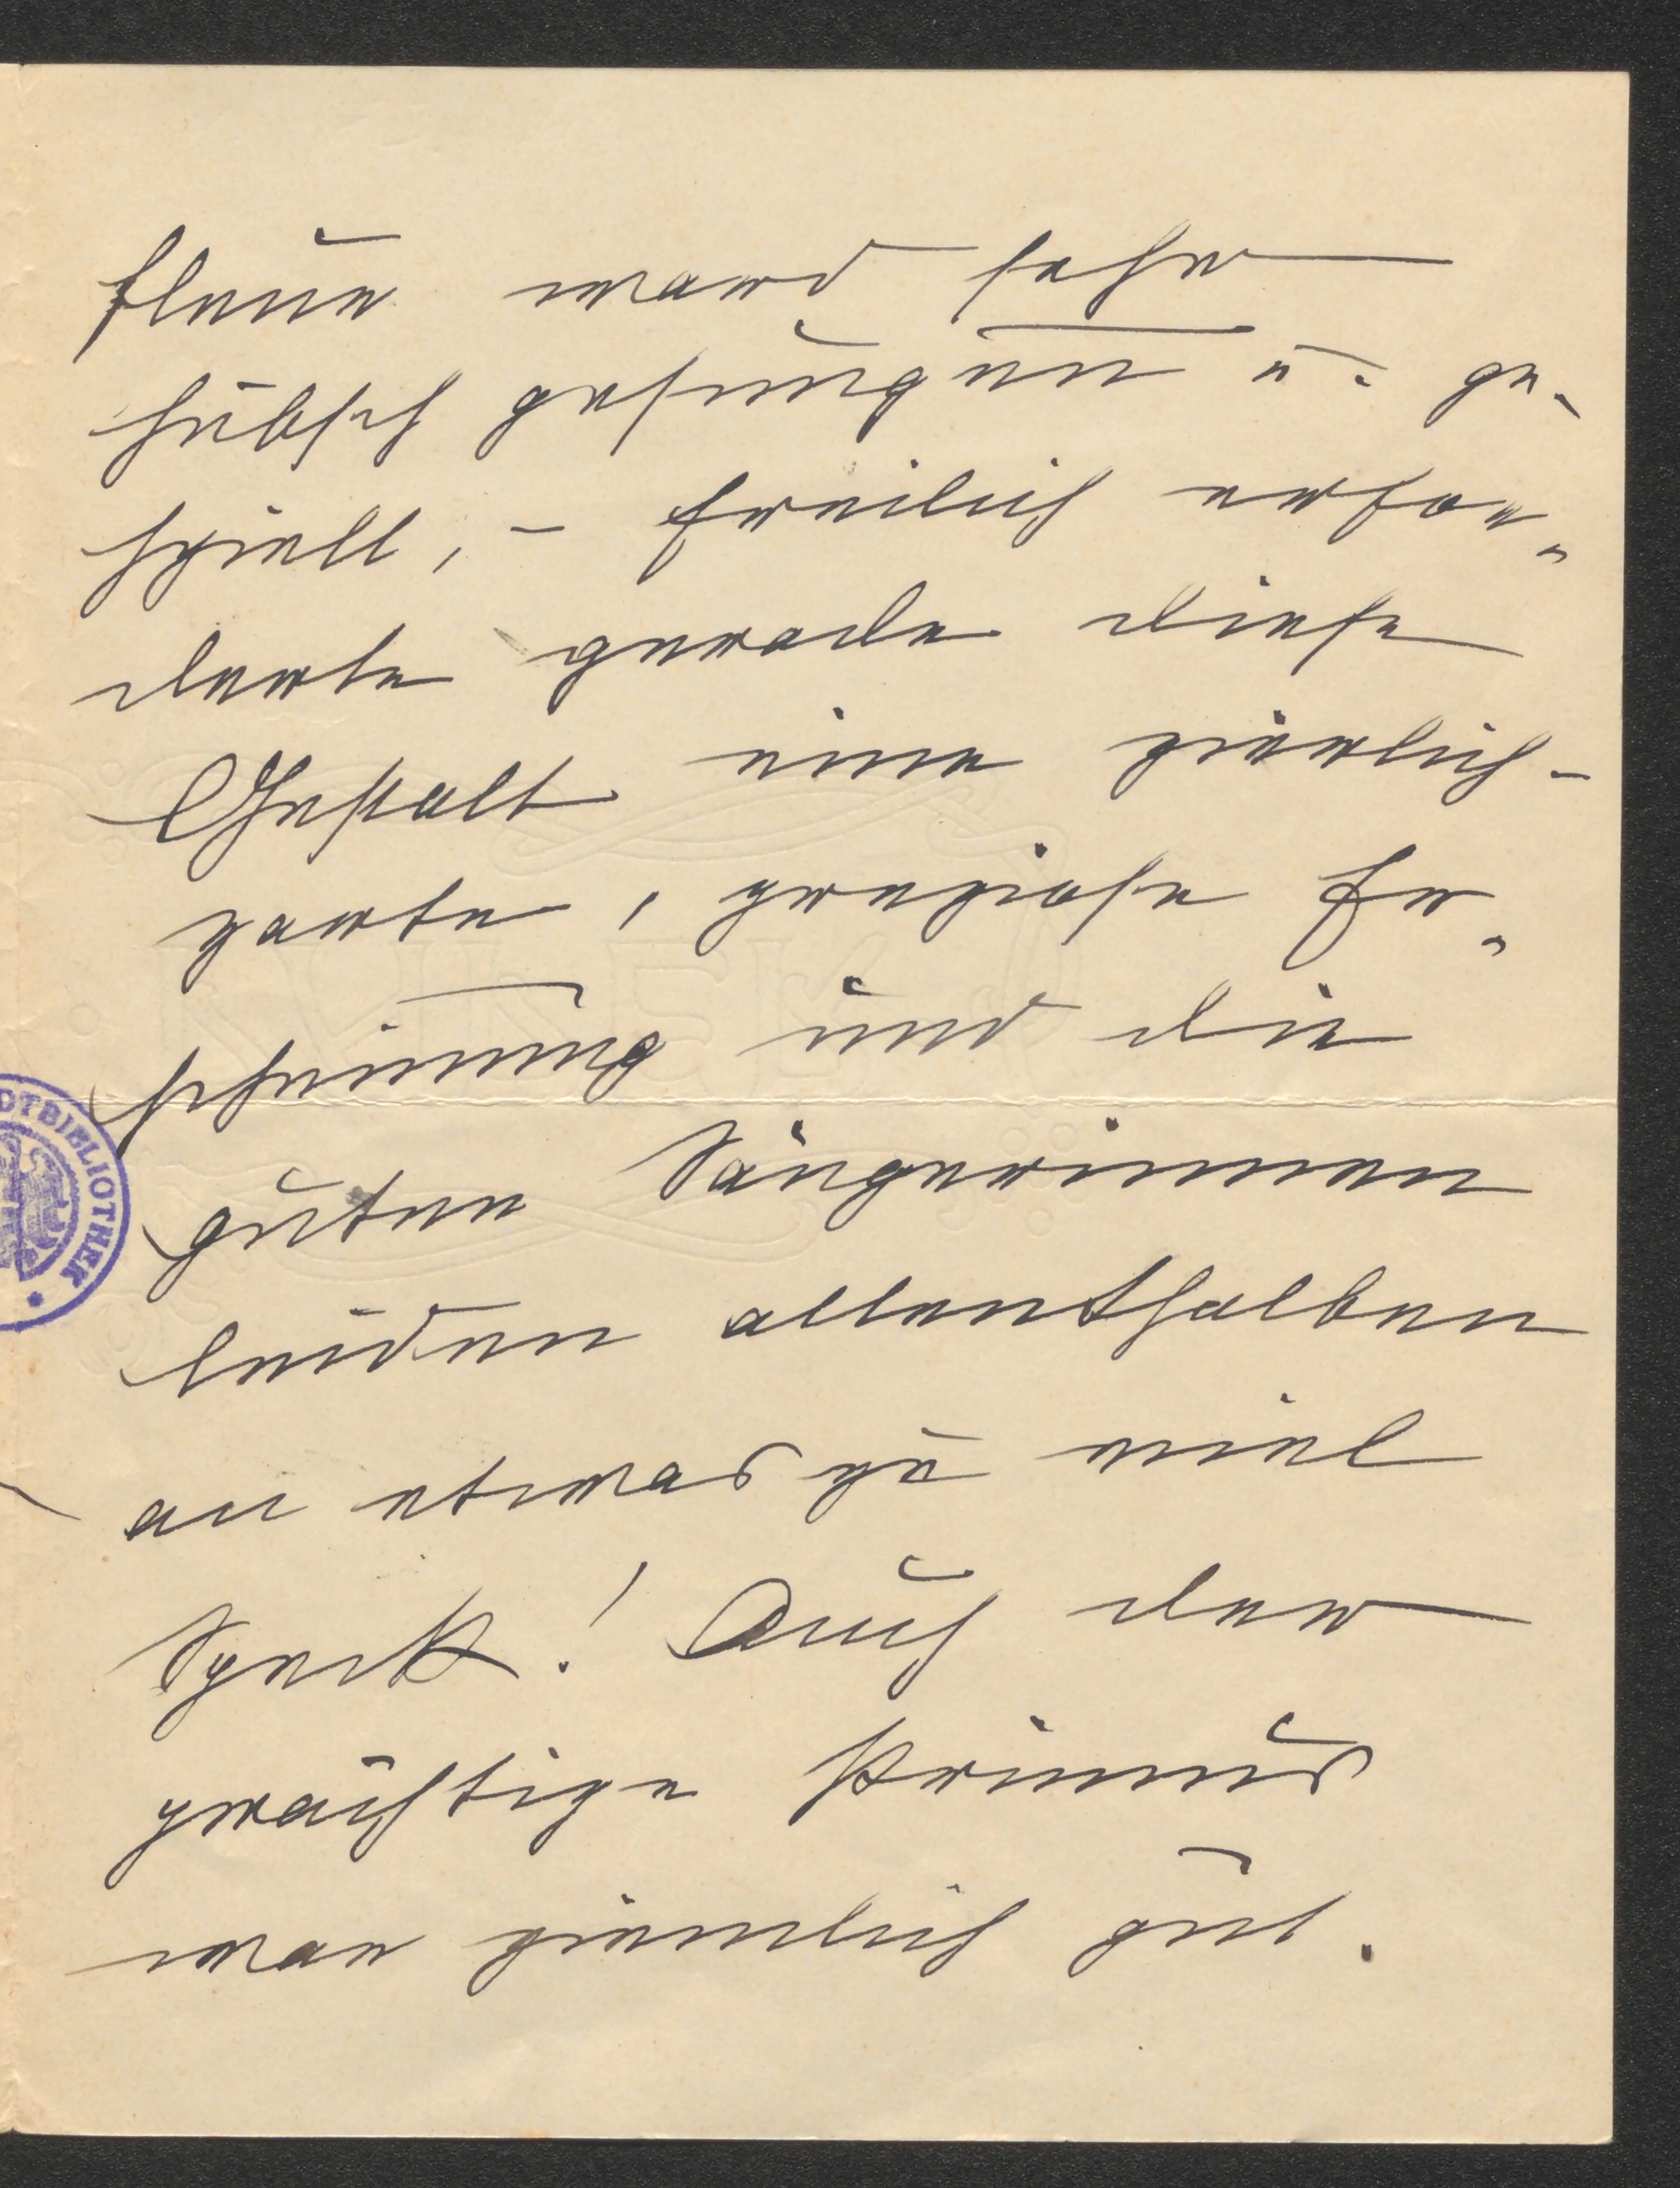 fleur ward sehr
hübsch gesungen u. ge-
spielt, – freilich erfor-
derte gerade diese
Gestalt eine zierlich-
zarte, graziöse Er-
scheinung und die
guten Sängerinnen
leiden allenthalben
an etwas zu viel
Speck! Auch der
prächtige
war ziemlich gut.
DTBIBLIOTHEK